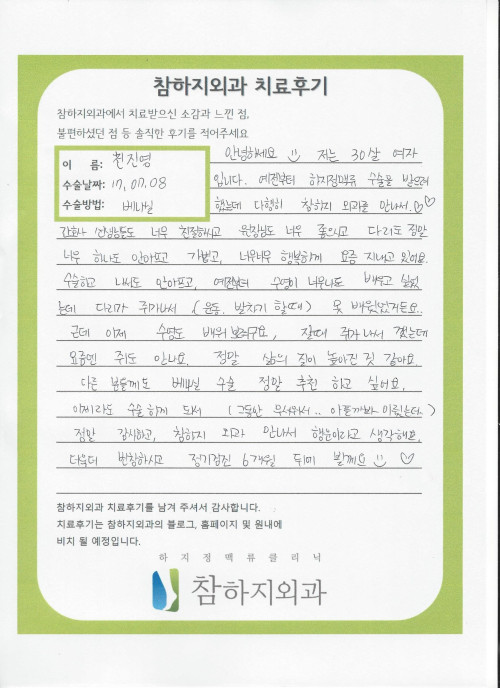 참하지외과 치료후기
참하지외과에서 치료받으신 소감과 느낀 점,
불편하셨던 점 등 솔직한 후기를 적어주세요
이 름: 진영
수술날짜: 17, 07. 08
수술방법: 베나실
안녕하세요 저는 30살 여자
입니다. 예전부터 하지정맥류 수술을 받으려
했는데 다행히 참하지 외과를 만나서.♡♡
간호사 선생님들도 너무 친절하시고 원장님도 너무 좋으시고 다리도 정말
너무 하나도 안아프고 가볍고, 너무너무 행복하게 요즘 지내고 있어요.
수술하고 나서도 안아프고, 예전부터 수영이 너무나도 배우고 싶었
는데 다리가 쥐가나서 (운동. 발차기 할때) 못 배웠었거든요..
근데 이제 수영도 배워 보려구요, 잘때 쥐가 나서 깼는데
요즘엔 쥐도 안나요. 정말 삶의 질이 높아진 것 같아요.
다른 분들께도 베나실 수술 정말 추천 하고 싶어요,
이제라도 수술 하게 되서 (그동안 무서워서.. 아플까봐 미뤘는데.)
정말 감사하고, 참하지 외과 만나서 행운이라고 생각해요,
더욱더 번창하시고 정기검진 6개월 뒤에 뵐께요 ♡
참하지외과 치료후기를 남겨 주셔서 감사합니다.
치료후기는 참하지외과의 블로그, 홈페이지 및 원내에
비치 될 예정입니다.
하지정맥류클리닉
참하지외과